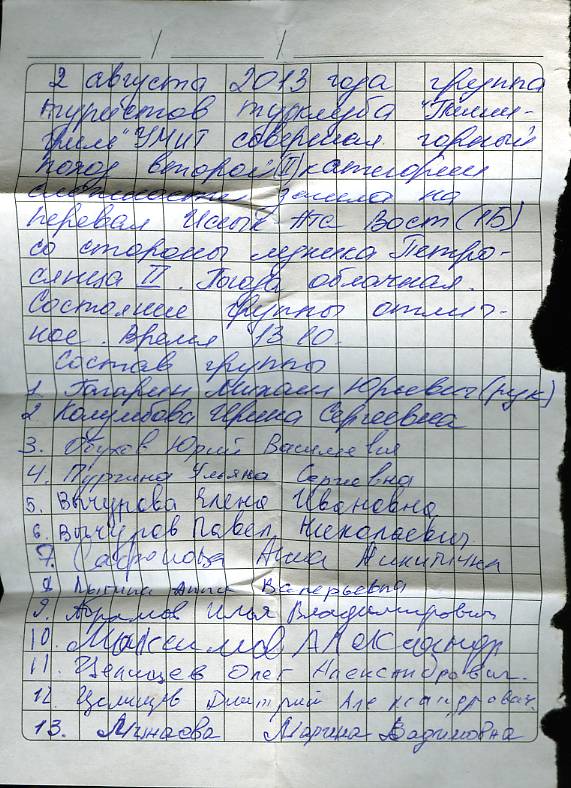 2 августа 2013 года группа
туристов турклуба "Пилиг-
рим" УМИТ совершая горный
поход второй (II) категории
сложности зашла на
перевал Иссык-Ата Вост (1Б)
со стороны ледника Петро-
сянца II. Погода облачная.
Состояние группы отлич-
ное. Время 13 00.
Состав группы
1. Гагарин Михаил Юрьевич (рук)
2 Колумбова Ирина Сергеевна
3. Обухов Юрий Васильевич
4. Пургина Ульяна Сергеевна
5. Вычурова Елена Ивановна
6. Вычуров Павел Николаевич
7. Анна Никитична
8 Анна Валерьевна
9. Абрамов Илья Владимирович
10. Максимов Александр
11. Целищев Олег Александрович.
12. Целищев Дмитрий Александрович.
13. Минаева Марина Вадимовна